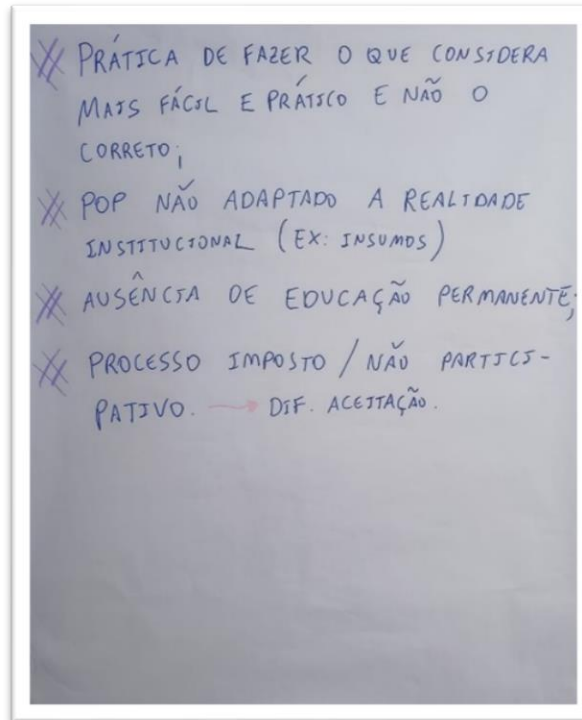 PRÁTICA DE FAZER O QUE CONSIDERA
MAIS FÁCIL E PRÁTICO E NÃO O
CORRETO;
POP NÃO ADAPTADO A REALIDADE
INSTITUCIONAL (EX: INSUMOS)
AUSÊNCIA DE EDUCAÇÃO PERMANENTE;
PROCESSO IMPOSTO / NÃO PARTICI-
PATIVO. → DIF. ACEITAÇÃO.